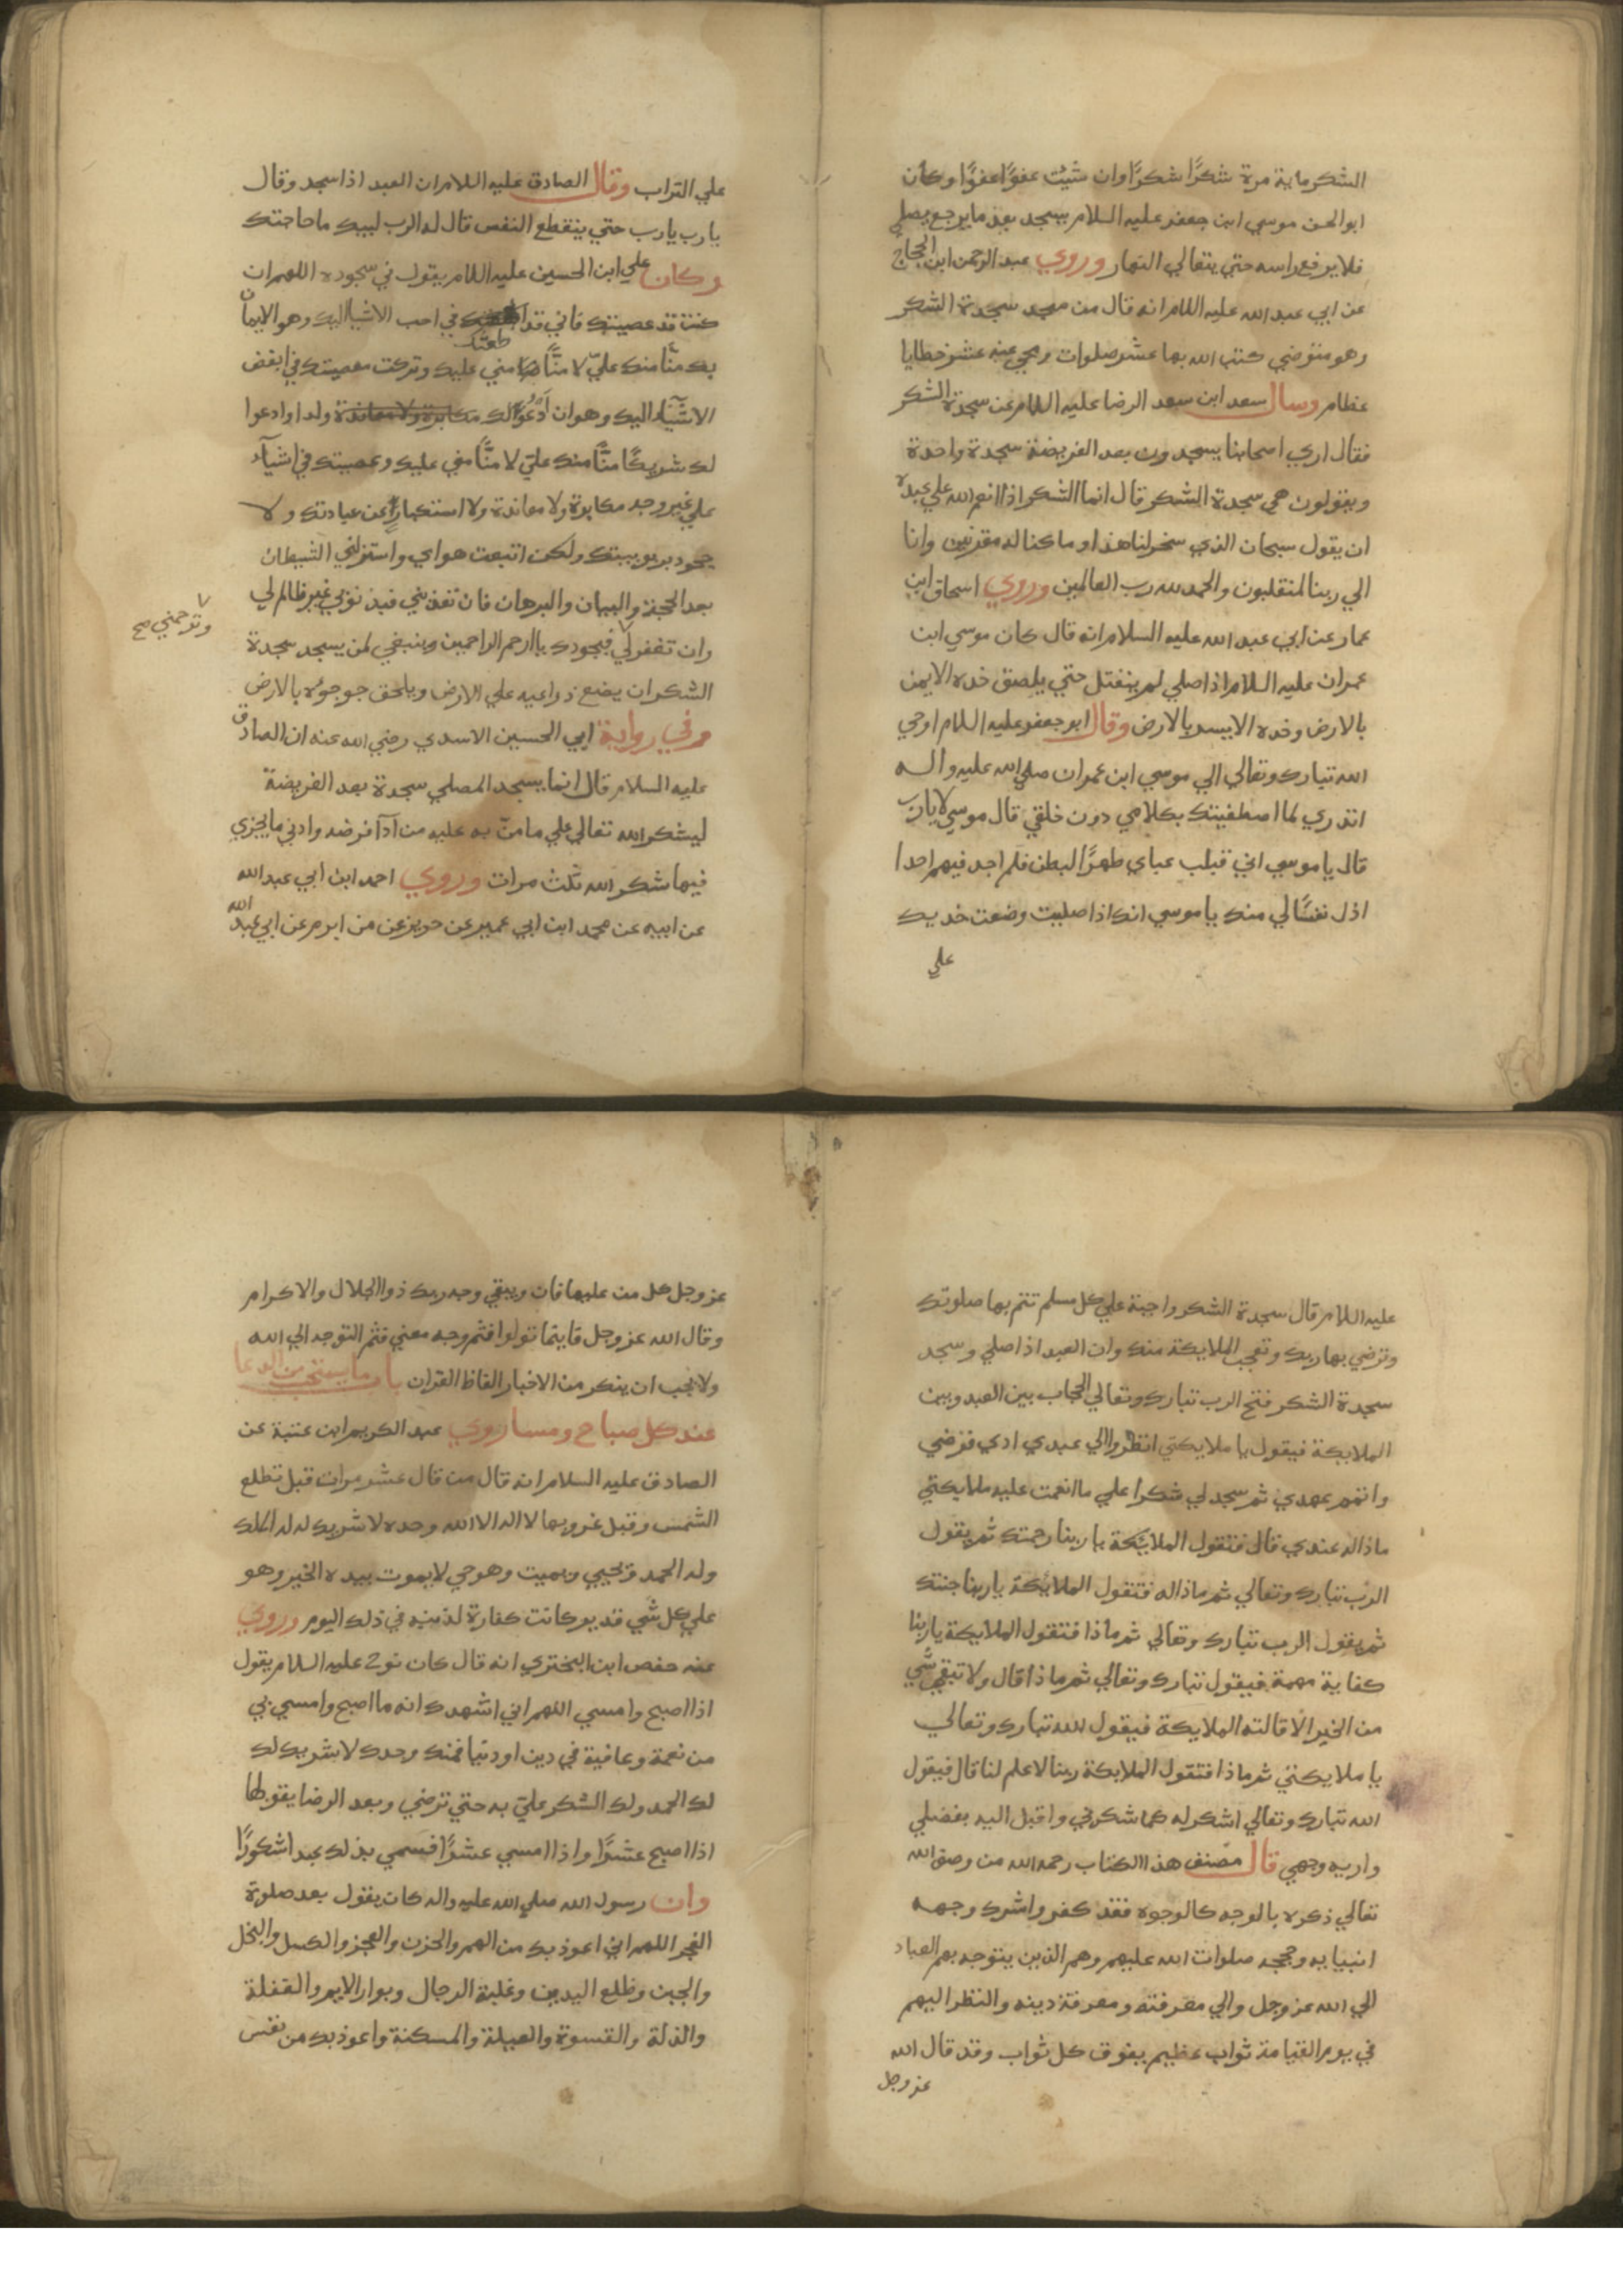 الشكر ماية مرة شكرًا شكرًا وان شيت عفوًا عفوًا وكان
ابو الحسن موسي ابن جعفر عليه السلام يسجد بعد ما يرجع يصلي
فلا يرفع راسه حتي يتعالي النهار وروي عبد الرحمن ابن الحجاج
عن ابي عبد الله عليه اللام انه قال من سجد سجدة الشكر
وهو متوضي كتب الله بها عشر صلوات ومحي عنه عشر خطايا
عظام وسال سعد ابن سعد الرضا عليه اللام عن سجدة الشكر
فقال اري اصحابنا يسجدون بعد الفريضة سجدة واحدة
ويقولون هي سجدة الشكر قال انما الشكر اذا انعم الله علي عبده
ان يقول سبحان الذي سخر لنا هذا وما كنا له مقرنين وانا
الي ربنا لمنقلبون والحمد لله رب العالمين وروي اسحاق ابن
عمار عن ابي عبد الله عليه السلام انه قال كان موسي ابن
عمران عليه السلام اذا صلي لم ينفتل حتي يلصق خده الايمن
بالارض وخده الايسر بالارض وقال ابو جعفر عليه اللام اوحي
الله تبارك وتعالي الي موسي ابن عمران صلي الله عليه واله
اتدري لما اصطفيتك بكلامي دون خلقي قال موسي لا يارب
قال يا موسي اني قبلب عباي ظهرًا لبطن فلم اجد فيهم احدا
اذل نفسًا لي منك يا موسي انك اذا صليت وضعت خديك
علي
علي التراب وقال الصادق عليه اللام ان العبد اذا سجد وقال
يا رب يارب حتي ينقطع النفس قال له الرب لبيك ما حاجتك
وكان علي ابن الحسين عليه اللام يقول في سجوده اللهم ان
كنت قد عصيتك فاني قد اطعتك في احب الاشيا اليك وهو الايمان
بك منًّا منك عليّ لا منًّا مني عليك وتركت معصيتك في ابغض
الاشيآء اليك وهو ان ادعوا لك مكابرة ولا معاندة ولدا وادعوا
لك شريكًا منًّا منك عليّ لا منًّا مني عليك وعصيتك في اشيآء
علي غير وجه مكابرة ولا معاندة ولا استكبارٍ عن عبادتك ولا
جحود بربوبيتك ولكن اتبعت هواي واستزلني الشيطان
بعد الحجة والبيان والبرهان فان تعذبني فبذنوبي غير ظالم لي
وان تغفر لي فبجودك يا ارحم الراحمين وينبغي لمن يسجد سجدة
وترحمني صح
الشكر ان يضع ذراعيه علي الارض ويلصق جوجوئه بالارض
وفي رواية ابي الحسين الاسدي رضي الله عنه ان الصادق
عليه السلام قال انما يسجد المصلي سجدة بعد الفريضة
ليشكر الله تعالي علي ما منّ به عليه من اداَ فرضه وادني ما يجزي
فيها شكر الله ثلث مرات وروي احمد ابن ابي عبد الله
عن ابيه عن محمد ابن ابي عمير عن حريز عن مرازم عن ابي عبد الله
عليه اللام قال سجدة الشكر واجبة علي كل مسلم تتم بها صلوتك
وترضي بها ربك وتعجب الملايكة منك وان العبد اذا صلي وسجد
سجدة الشكر فتح الرب تبارك وتعالي الحجاب بين العبد وبين
الملايكة فيقول يا ملايكتي انظروا الي عبدي ادي فرضي
واتم عهدي ثم سجد لي شكرا علي ما انعمت عليه ملايكتي
ماذا له عندي قال فتقول الملايكة يا ربنا رحمتك ثم يقول
الرب تبارك وتعالي ثم ماذا له فتقول الملايكة يا ربنا جنتك
ثم يقول الرب تبارك وتعالي ثم ماذا فتقول الملايكة يا ربنا
كفاية مهمة فيقول تبارك وتعالي ثم ماذا قال ولا تبقي شي
من الخير الّا قالته الملايكة فيقول الله تبارك وتعالي
يا ملايكتي ثم ماذا فتقول الملايكة ربنا لا علم لنا قال فيقول
الله تبارك وتعالي اشكر له كما شكرني واقبل اليه بفضلي
واريه وجهي قال مصنف هذا الكتاب رحمه الله من وصف الله
تعالي ذكره بالوجه كالوجوه فقد كفر واشرك وجهه
انبيايه وحججه صلوات الله عليهم وهم الذين يتوجه بهم العباد
الي الله عز وجل والي معرفته ومعرفة دينه والنظر اليهم
في يوم القيامة ثواب عظيم يفوق كل ثواب وقد قال الله
عز وجل
عز وجل كل من عليها فان ويبقي وجه ربك ذوا الجلال والاكرام
وقال الله عز وجل فاينما تولوا فثم وجه معني فثم التوجه الي الله
ولا يجب ان ينكر من الاخبار الفاظ القران باب ما يستحب من الدعا
عند كل صباح ومسا روي عبد الكريم ابن عتبة عن
الصادق عليه السلام انه قال من قال عشر مرات قبل تطلع
الشمس وقبل غروبها لا اله الا الله وحده لا شريك له له الملك
وله الحمد ويحيي ويميت وهو حي لا يموت بيده الخير وهو
علي كل شي قدير كانت كفارة لذنبه في ذلك اليوم وروي
عنه حفص ابن البختري انه قال كان نوح عليه اللام يقول
اذا اصبح وامسي اللهم اني اشهدك انه ما اصبح وامسي بي
من نعمة وعافية في دين او دنيا فمنك وحدك لا شريك لك
لك الحمد ولك الشكر عليّ به حتي ترضي وبعد الرضا يقولها
اذا اصبح عشرًا واذا امسي عشرًا فسمي بذلك عبدا شكورًا
وان رسول الله صلي الله عليه واله كان يقول بعد صلوة
الفجر اللهم اني اعوذ بك من الهم والحزن والعجز والكسل والبخل
والجبن وظلع اليدين وغلبة الرجال وبوار الايم والغفلة
والذلة والقسوة والعيلة والمسكنة واعوذ بك من نفس